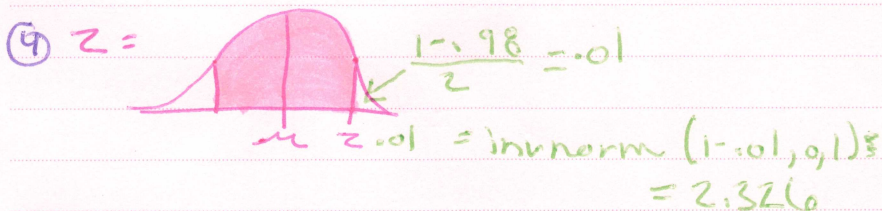 ④ z =
1-.98
2
= .01
μ z.01 = invnorm (1-.01, 0, 1)
= 2.326